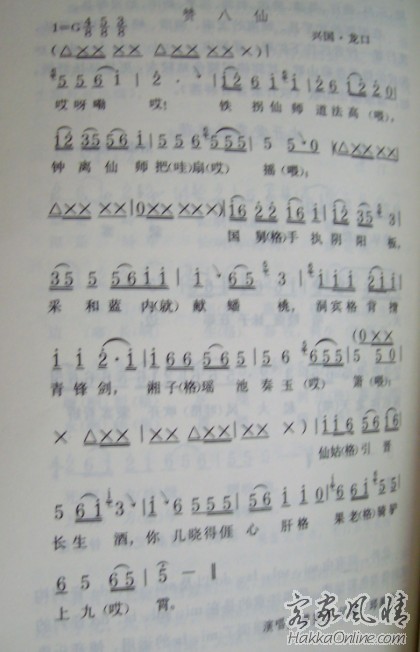 赞 八 仙
1=G 4/8 5/8 3/8 兴国·龙口
(△×× ×× ×× ×)|
5 5 6 i | 2 · · | i 2 6 i 2 | 2 6 i 2 2 0|
哎呀嘞 哎! 铁 拐仙师 道法高(喂),
i2 35 5 5 6 i | 5 5 6 5 5 5| 5 5·0 |(△×× ××
钟离仙师把(哇)扇(哎) 摇(喂),
△×× ××|0×× ××·××)|i6 2 2 i 6 i |i2 35 3|
国舅(格)手执阴阳板,
35 5 5 6 i i | i · 6 5 3 | i i i 2 i i|
采和蓝内(就)献蟠桃,洞宾格背插
i i 2·i |i 6 6 5 6 5 | 5 6 6 5 5 | 5 5 0|
(0××
青锋剑,湘子(格)瑶池奏玉(哎)箫(喂)
× △×× ××|×× △×× ××| ×× × )|i i 6 5 6 i 6|
仙姑(格)引晋
5 6 i 3 · |i · 6 5 5 5 5 |5 6 i i 0| 6 6 i 5 5|
长生酒,你几晓得𠊎心肝格 果老(格)骑驴
6 5 6 5 | 5 — ‖
上九(哎)霄。
演唱
客家风情
HakkaOnline.com